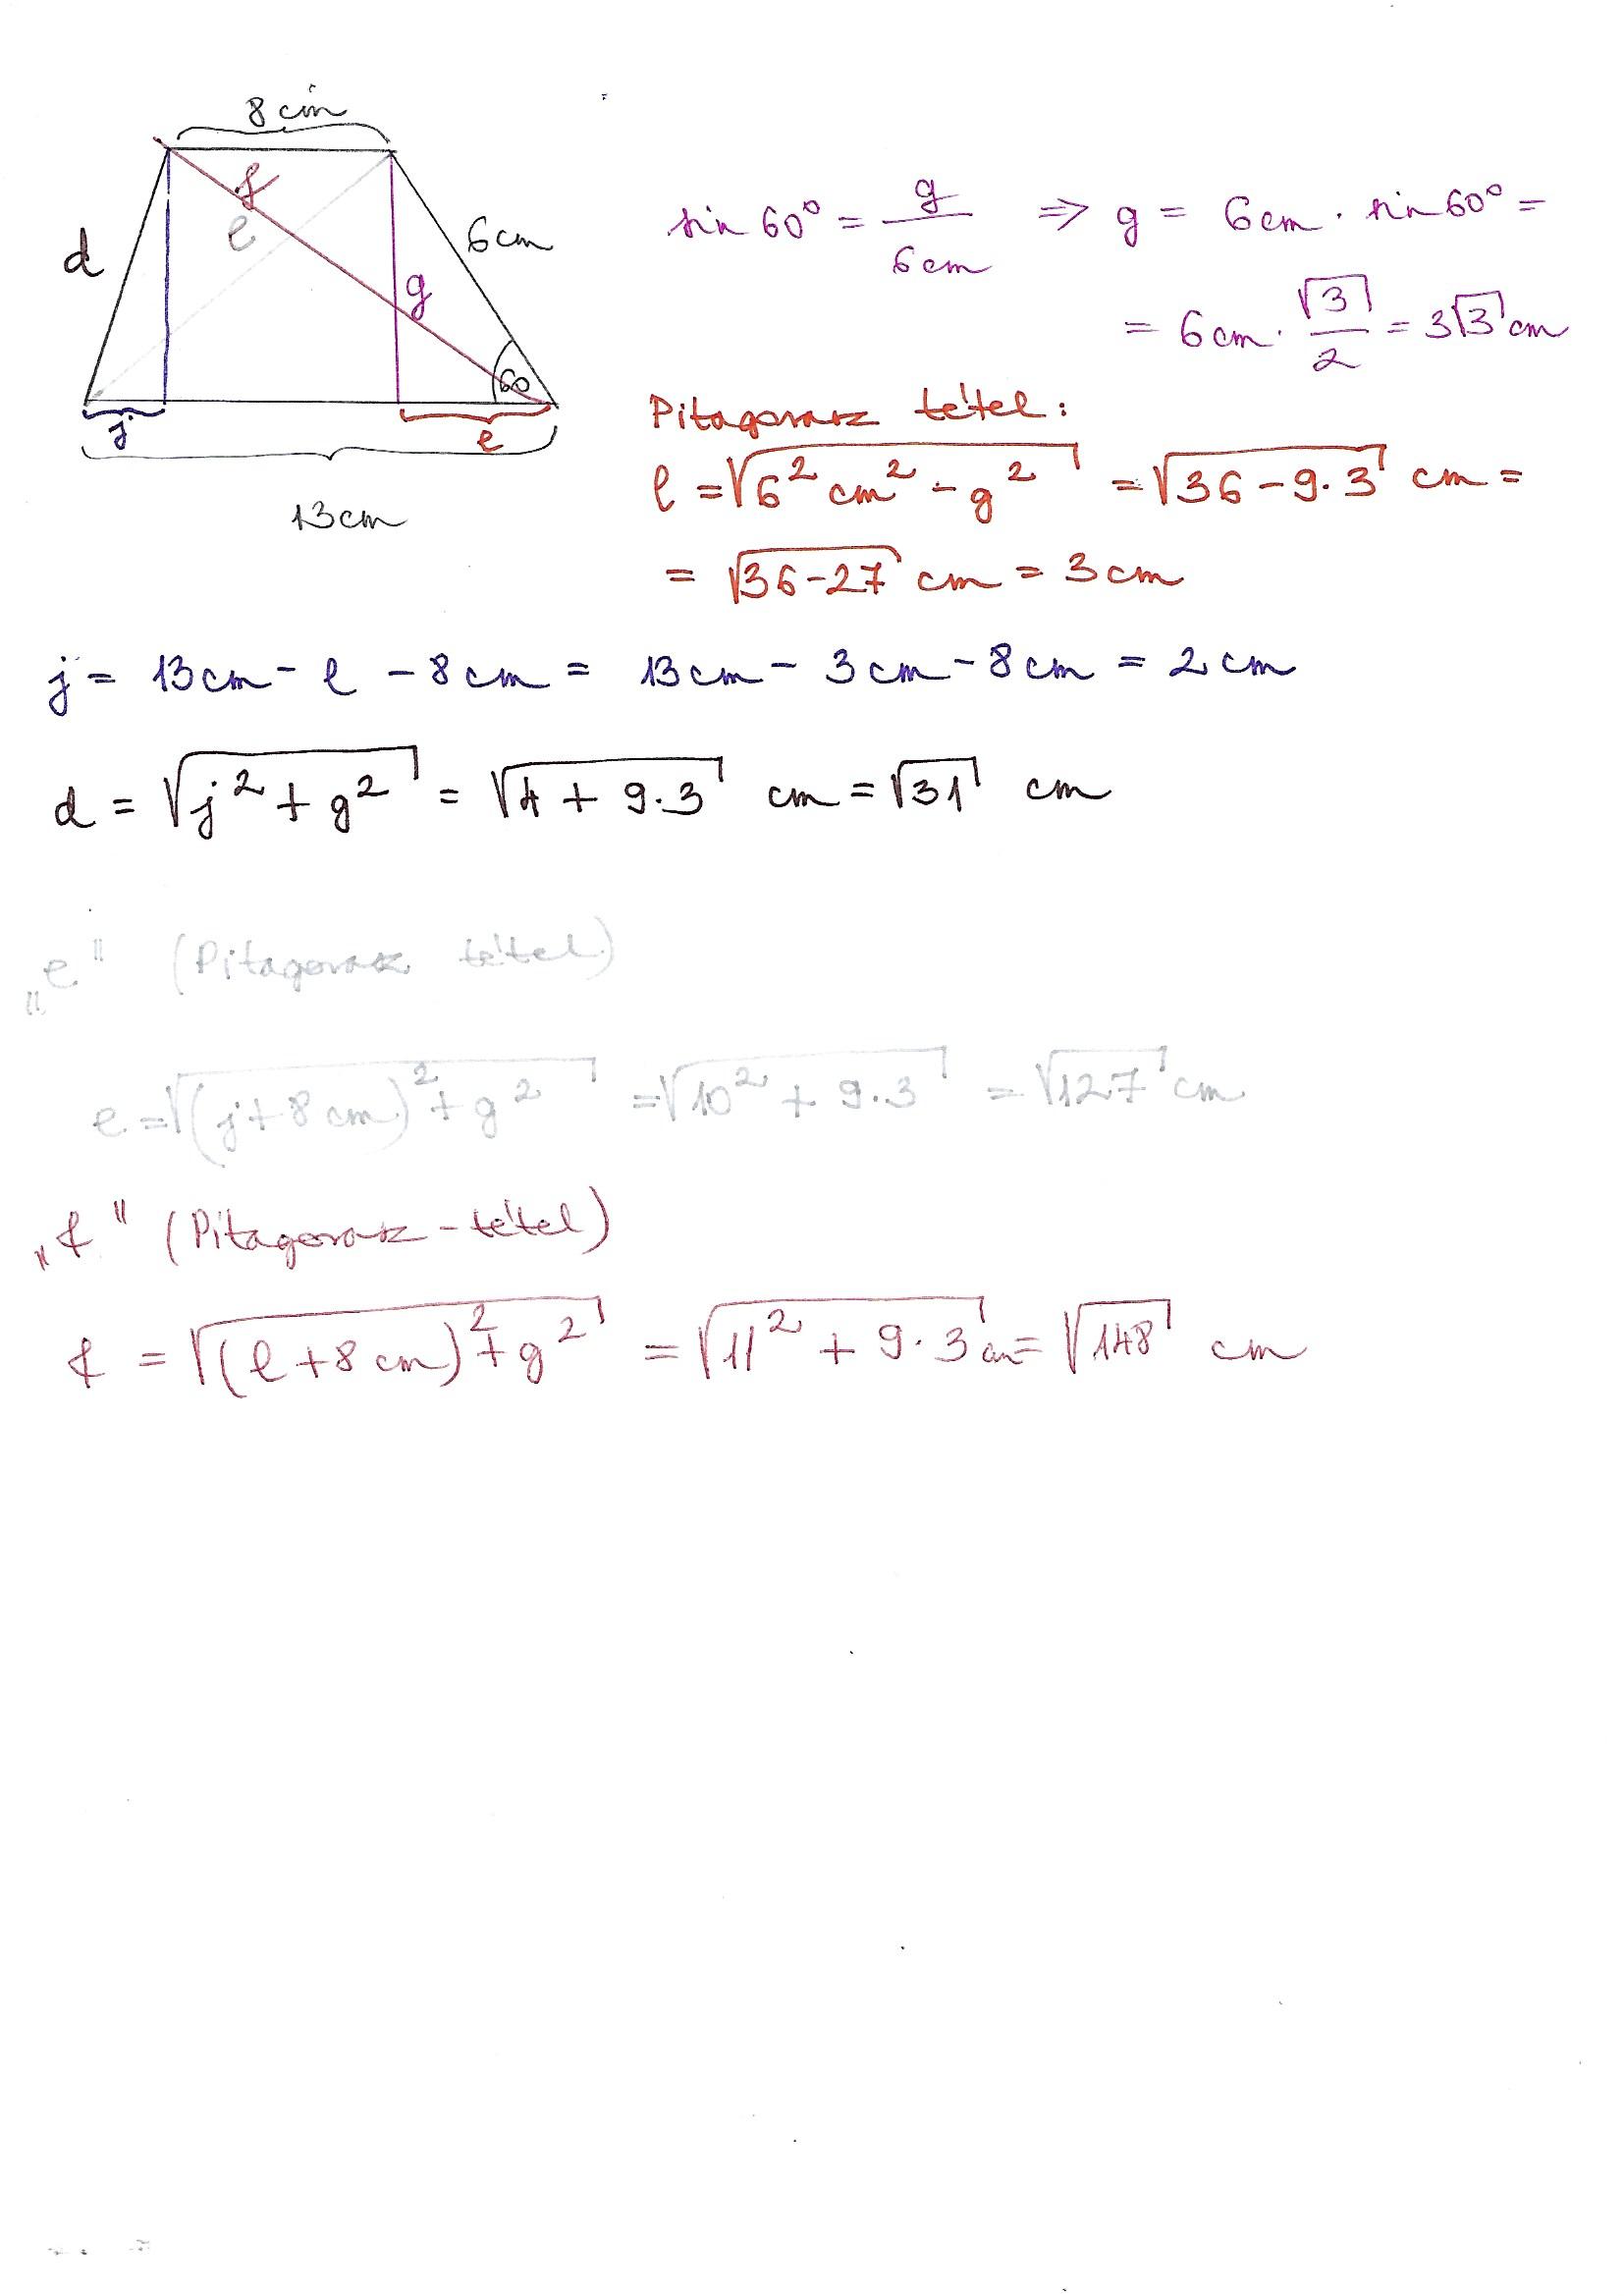 8 cm
f
e
d
6cm
g
60
j
e
13cm
sin 60° = g / 6cm ⇒ g = 6cm · sin 60° =
= 6cm · √3 / 2 = 3√3 cm
Pitagorasz tétel:
l = √(6² cm² - g²) = √(36 - 9·3) cm =
= √(36-27) cm = 3cm
j = 13cm - l - 8cm = 13cm - 3cm - 8cm = 2cm
d = √(j² + g²) = √(4 + 9·3) cm = √31 cm
„e" (Pitagorasz tétel)
e = √((j+8cm)² + g²) = √(10² + 9·3) = √127 cm
„f" (Pitagorasz-tétel)
f = √((l+8cm)² + g²) = √(11² + 9·3) cm = √148 cm